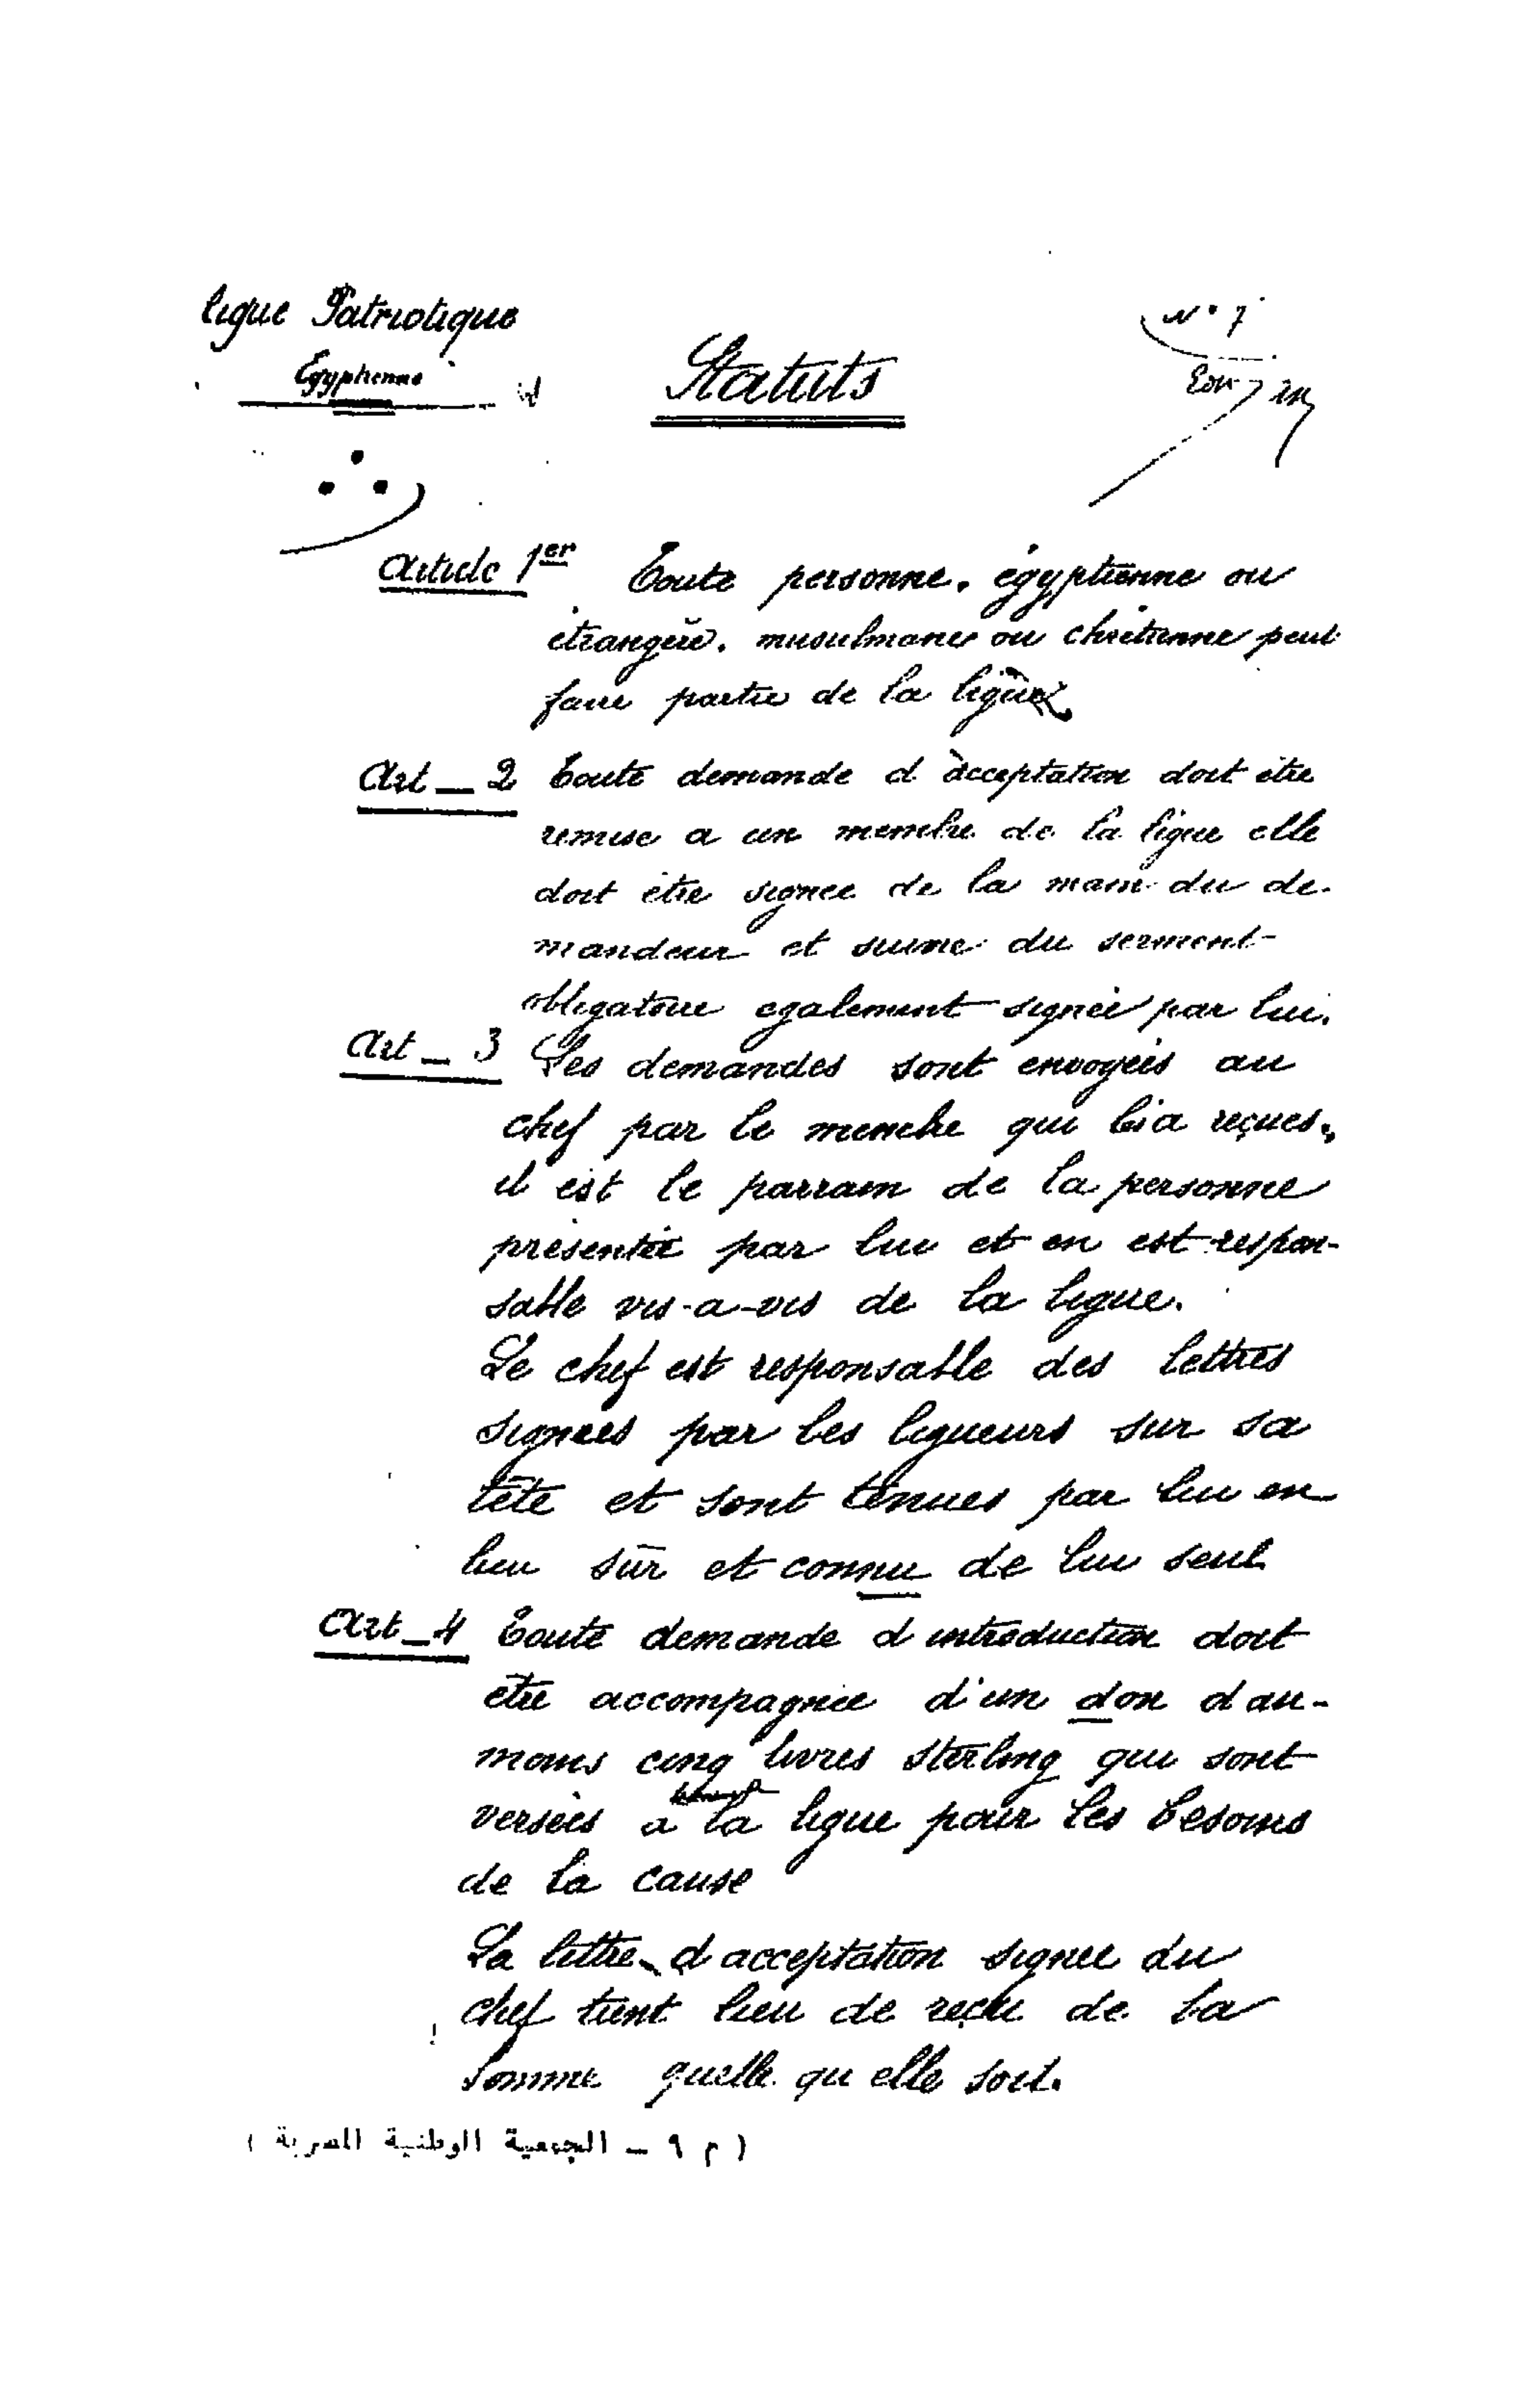 Ligue Patriotique
Egyptienne
N° 7
Statuts
Article 1er Toute personne, égyptienne ou
étrangère, musulmane ou chrétienne peut
faire partie de la ligue
Art _ 2 Toute demande d'acceptation doit être
remise a un membre de la ligue elle
doit être signée de la main du de-
mandeur et suivie du serment
obligatoire egalement signée par lui.
Art _ 3 Les demandes sont envoyées au
chef par le membre qui les a reçues.
il est le parrain de la personne
présentée par lui et en est respon-
sable vis-a-vis de la ligue.
Le chef est responsable des lettres
signées par les ligueurs sur sa
tête et sont tenues par lui en
lieu sûr et connu de lui seul
Art _ 4 Toute demande d introduction doit
être accompagnée d'un don d au-
moins cinq livres sterling qui sont
versées à la ligue pour les besoins
de la cause
La lettre d acceptation signée du
chef tient lieu de reçu de la
somme quelle qu elle soit.
( م ٩ – الجمعية الوطنية المصرية )